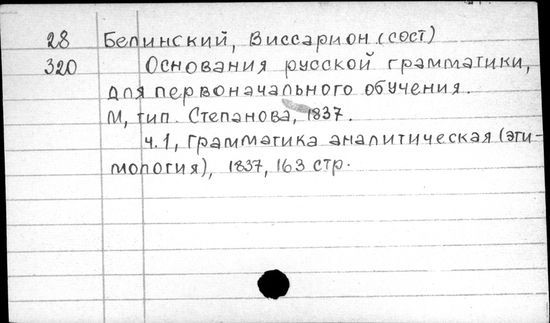 28 Белинский, Виссарион (сост)
320 Основания русской грамматики,
для первоначального обучения.
М, тип. Степанова, 1837.
ч.1, Грамматика аналитическая (эти-
мология), 1837, 163 стр.